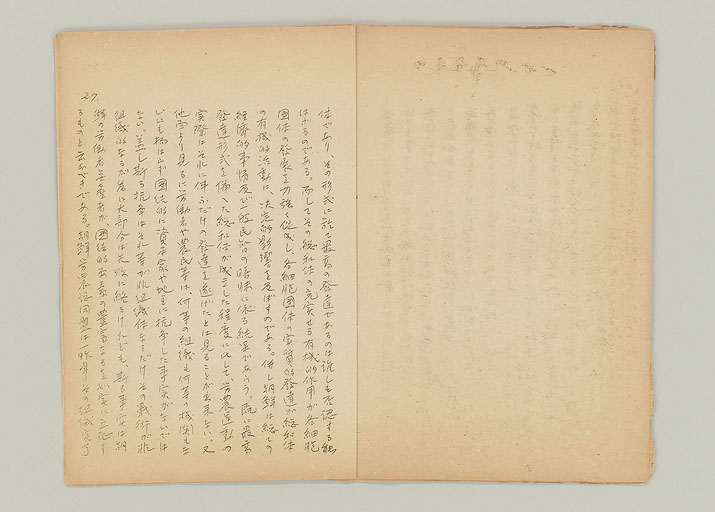 27
体であり、その形式に於て最高の発達であるのは誰しも否認する能
はざるのである。而してその総和体の充実せる有機的作用が各細胞
団体の発展を力強く促成し各細胞団体の実質的発達が総和体
の有機的活動に、決定的影響を及ぼすのである。併し朝鮮は総ての
経済的事情及び一般民智の曖昧に依る結果であらう。既に最高
発達形式を備へた総和体が成立した程度に比して労農運動の
実際はそれに伴ふだけの発達を遂げたとは見ることが出来ない。又
他面より見るに労働者や農民等は、何等の組織も何等の機関もな
いにも拘はらず団結的に資本家や地主に抗争した事実がないでは
ない。蓋し斯る抗争はそれ等が非組織体なるだけその戦術が非
組織的なるが為に大部分は失敗に終るけれども、斯る事実は朝
鮮の労働者無産者が団結的要素の豊富なるを如実に立証す
るものと云ふべきである。朝鮮労農総同盟は昨年その組織完了